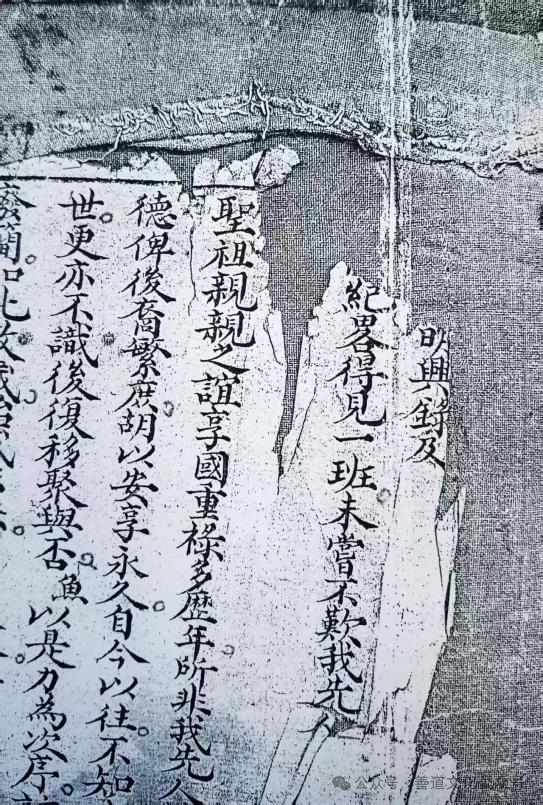 明興錄及
紀畧得見一班未嘗不歎我先人
聖祖親親之誼享國重祿多歷年所非我先人
德俾後裔繁庶胡以安享永久自今以往不知
世更亦不識後復移聚與否魚以是力為次序
公众号·善道文